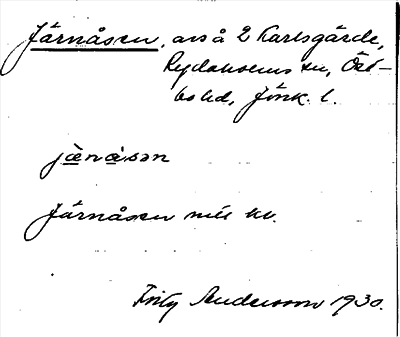 Järnåsen, avs å 2 Karlsgärde,
Rydaholms sn, Öst-
bo hd, Jönk. l.
jä̀nàsən
Järnåsen nu kv.
Fritz Andersson 1930.